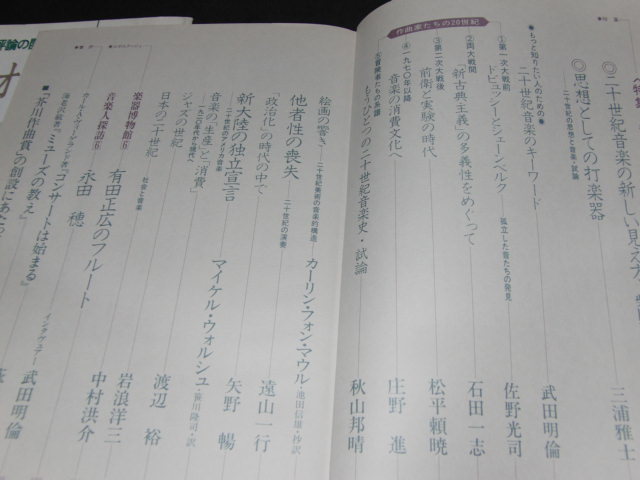 ◎二十世紀音楽の新しい見え方
◎思想としての打楽器
二十世紀の思想と音楽・試論
三浦雅士
●もっと知りたい人のための●
二十世紀音楽のキーワード
武田明倫
作曲家たちの20世紀
①第一次大戦前
ドビュッシーとシェーンベルク
孤立した音たちの発見
佐野光司
②両大戦間
「新古典主義」の多義性をめぐって
石田一志
③第二次大戦後
前衛と実験の時代
松平頼暁
④一九七〇年以降
音楽の消費文化へ
庄野 進
⑤冒険者たちの系譜
もうひとつの二十世紀音楽史・試論
秋山邦晴
絵画の響き
二十世紀美術の音楽的構造
カーリン・フォン・マウル
池田信雄・抄訳
他者性の喪失
二十世紀の演奏
遠山一行
「政治化」の時代の中で
新大陸の独立宣言
二十世紀のアメリカ音楽
矢野 暢
音楽の「生産」と「消費」
一九二〇年代から現代へ
マイケル・ウォルシュ
笹川隆司・訳
ジャズの世紀
日本の二十世紀
社会と音楽
渡辺 裕
楽器博物館⑥
有田正広のフルート
岩浪洋三
音楽人探訪⑥
永田 穂
中村洪介
『コンサートは始まる』
海老沢敏著『ミューズの教え』
インタヴュアー
武田明倫
『芥川作曲賞』の創設にあたっ
評論の